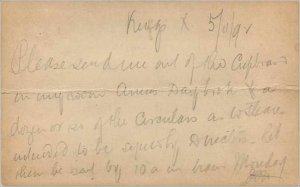 Kings X. 5/11/92
Please send me out of the Cupboard
in my room Annes Daybook & a
dozen or so of the Circulars as to Shares
intended to be signed by Directors. Let
them be sent by 10 a m train Monday